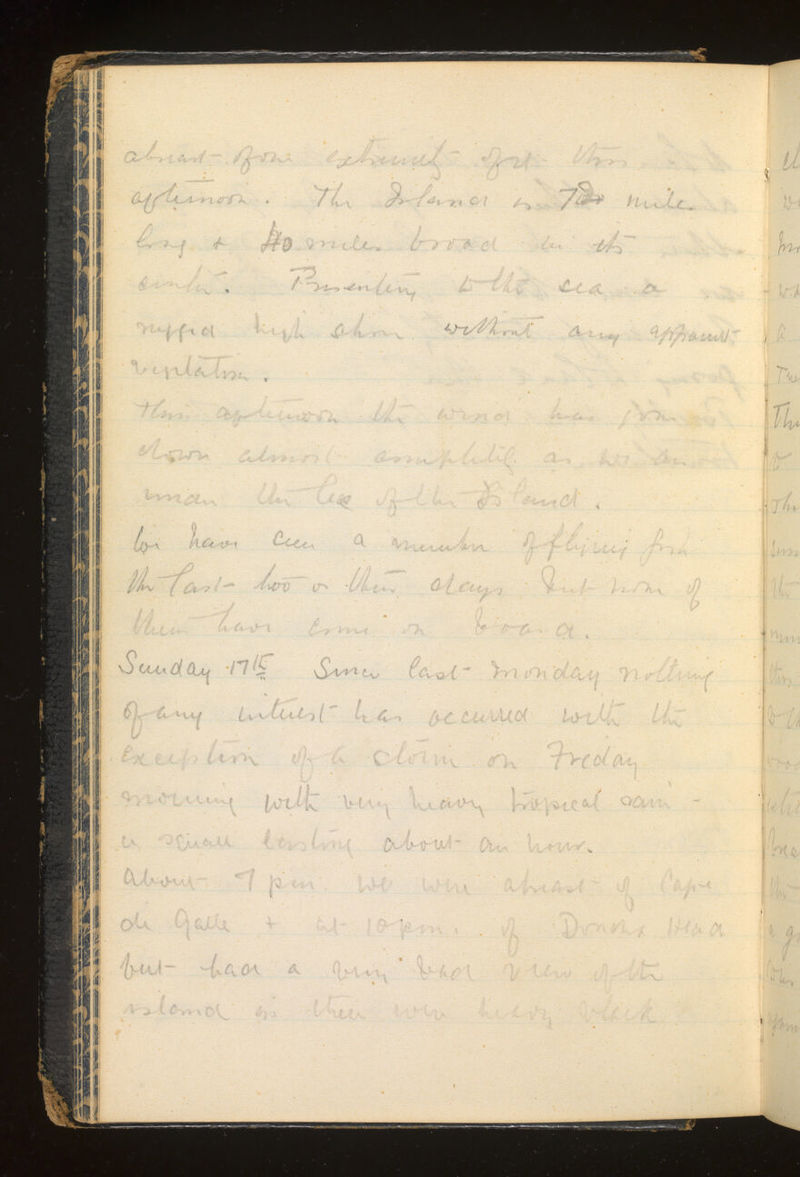 abreast of one extremity of it this
afternoon. The Island is 70 miles
long & 40 miles broad in its
center. Presenting to the sea a
rugged high shore without any apparent
vegetation.
This afternoon the wind has gone
down almost completely as we are
under the lee of the Island.
We have seen a number of flying fish
the last two or three days but none of
them have come on board.
Sunday 17th Since last Monday nothing
of any interest has occurred with the
exception of a storm on Freday
morning with very heavy tropical rain -
a squall lasting about an hour.
About 7 pm we were abreast of Cape
de Galle & at 10 pm. of Dondra Head
but had a very bad view of the
island as there were heavy black